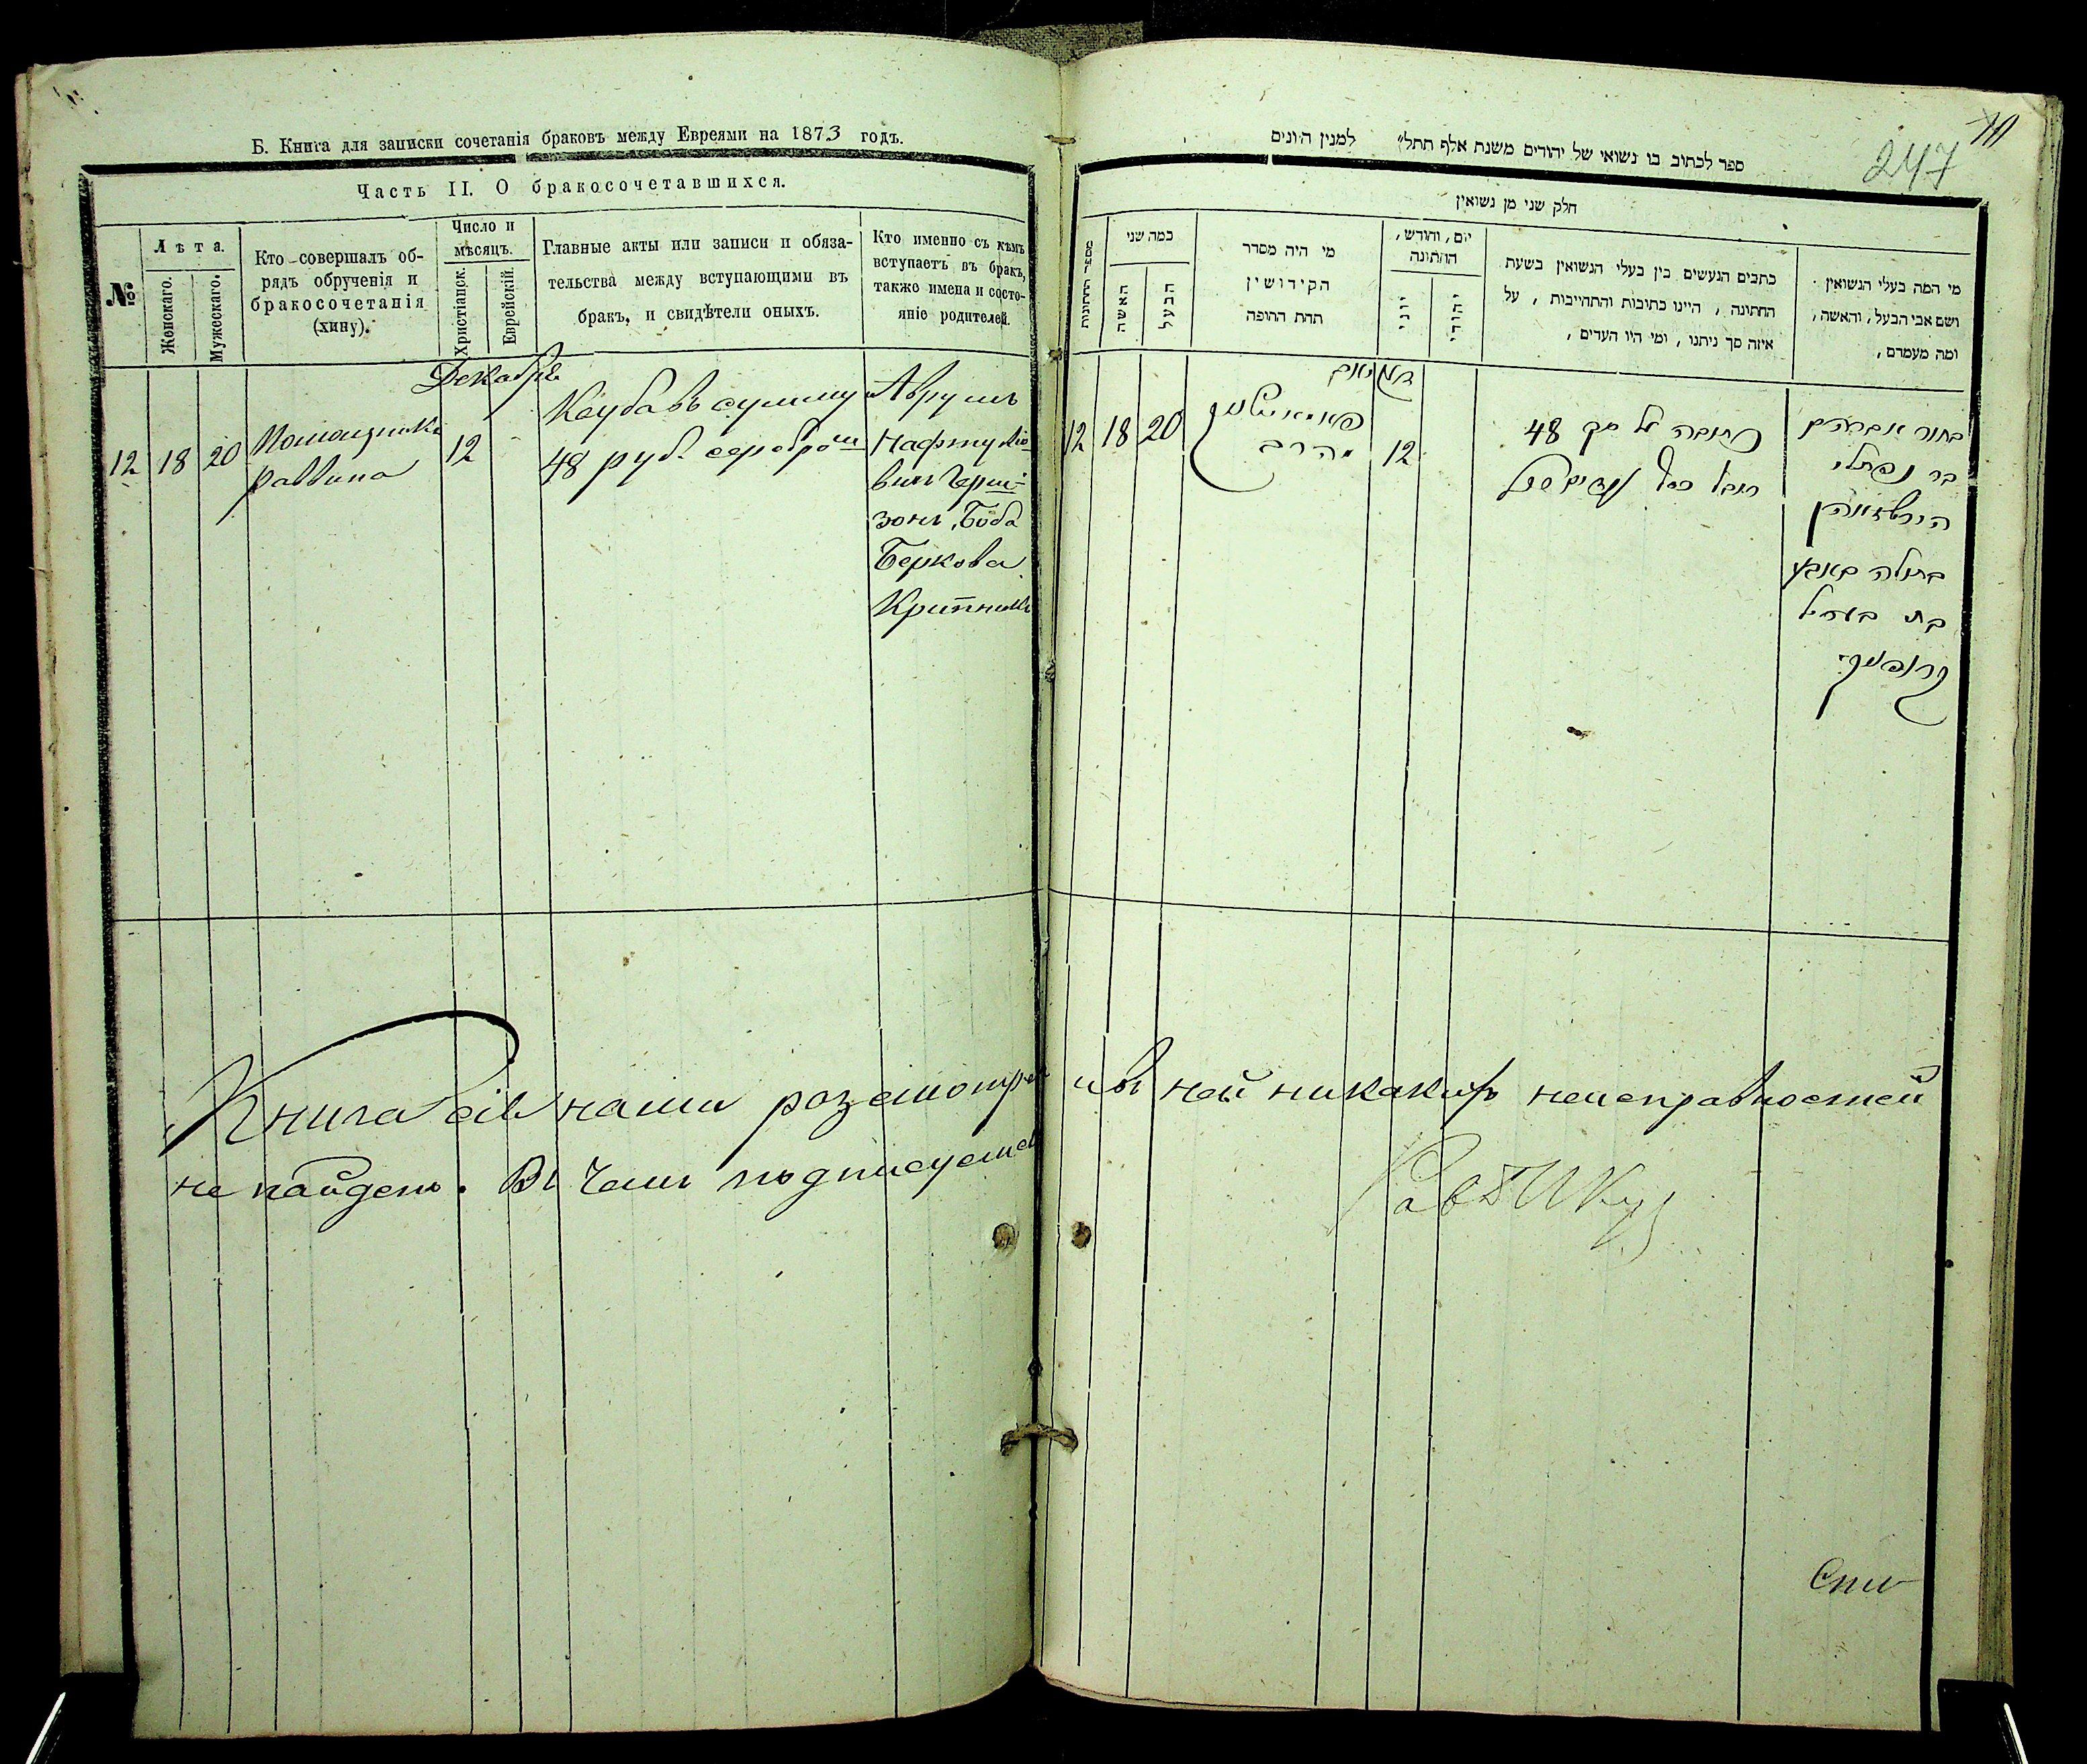 Б. Книга для записки сочетанія браковъ между Евреями на 1873 годъ.
Часть II. О бракосочетавшихся.
№
Лѣта.
Женскаго.
Мужескаго.
Кто совершалъ об-
рядъ обрученія и
бракосочетанія
(хину).
Число и
мѣсяцъ.
Христіанск.
Еврейскій.
Главные акты или записи и обяза-
тельства между вступающими въ
бракъ, и свидѣтели оныхъ.
Кто именно съ кѣмъ
вступаетъ въ бракъ,
также имена и состо-
яніе родителей.
Декабрь
12 18 20
Помощникъ
раввина
12
Ктубавъ сумму
48 руб. серебромъ
Аврумъ
Нафтуліо-
вичъ Герш-
зонъ, Боба
Беркова
Крипникъ
Книга сія нами розсмотрена
не найдено. Въ чемъ подписуемся
ספר לכתוב בו נשואי של יהודים משנת אלף תתל״ למנין היונים
10
247
חלק שני מן נשואין
מספר החתונות
כמה שני
האשה
הבעל
מי היה מסדר
הקידושין
תחת החופה
יום, וחודש,
החתונה
יוני
יהודי
כתבים הנעשים בין בעלי הנשואין בשעת
החתונה, היינו כתובות והתחייבות, על
איזה סך ניתנו, ומי היו העדים,
מי המה בעלי הנשואין
ושם אבי הבעל, והאשה,
ומה מעמדם,
12 18 20
הרב
12
כתובה על סך 48
בחור אברהם
בר נפתלי
הירשזאהן
בתולה באבע
בת בערל
קריפניק
и въ ней никакихъ неисправностей